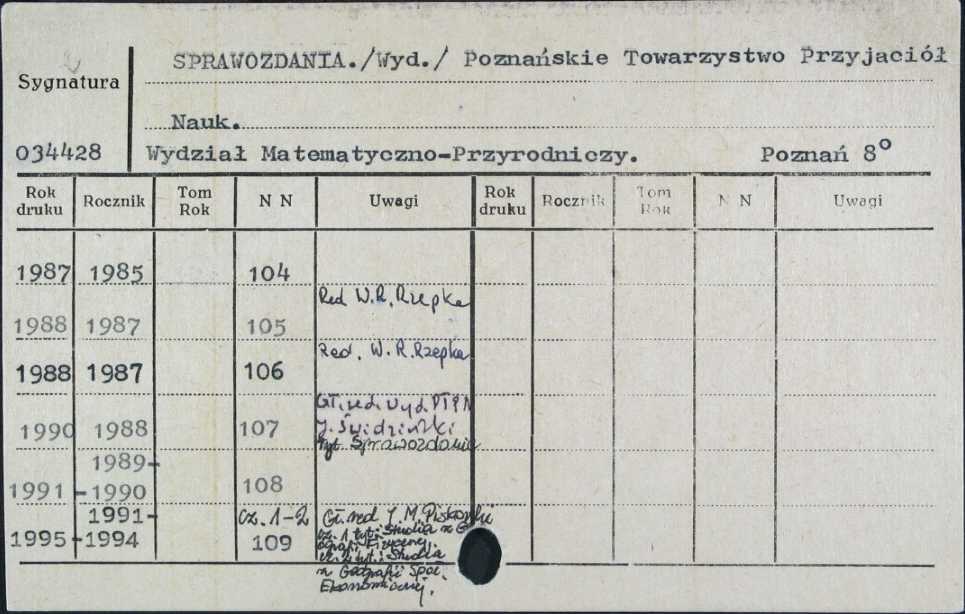 SPRAWOZDANIA./Wyd./ Poznańskie Towarzystwo Przyjaciół
Sygnatura
Nauk.
034428 Wydział Matematyczno-Przyrodniczy. Poznań 8°
Rok druku Rocznik Tom Rok N N Uwagi Rok druku Rocznik Tom Rok N N Uwagi
1987 1985 104
Red W.R. Rzepka
1988 1987 105
Red. W.R. Rzepka
1988 1987 106
Gł. red. Wyd. PTPN
1990 1988 107 J. Świdziński
Tyt. Sprawozdania
1989-
1991 -1990 108
1991- cz. 1-2 Gł. red J. M. Piskorski
cz. 1 tyt.: Studia z G
1995-1994 109 ograf. Fizycznej.
cz. 2 tyt.: Studia
z Geografii Społ.
Ekonomicznej.